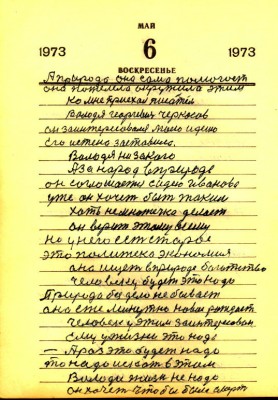 МАЙ
1973 6 1973
ВОСКРЕСЕНЬЕ
А природа она сама помогает
она пожелала окружила этим
ко мне приехал писатель
Володя Георгиевич Черкасов
он заинтересовался мною идею
его истина заставило.
Володя ни за кого
Я за народ в природе
он соглошаетс сидно Иваново
уже он хочет быть таким
хоть немножечко делает
он верит этому всему
но у него есть старое
это политека экономия
она ищет в природе богатство
человеку будет это надо
Природа без дело не бывает
она ежеминутно новое рождает
человек у этим заинтересован
ему у жизни это надо
— А раз это будет надо
то надо искать в этим
Володи жизнь не надо
он хочет что бы были смерт